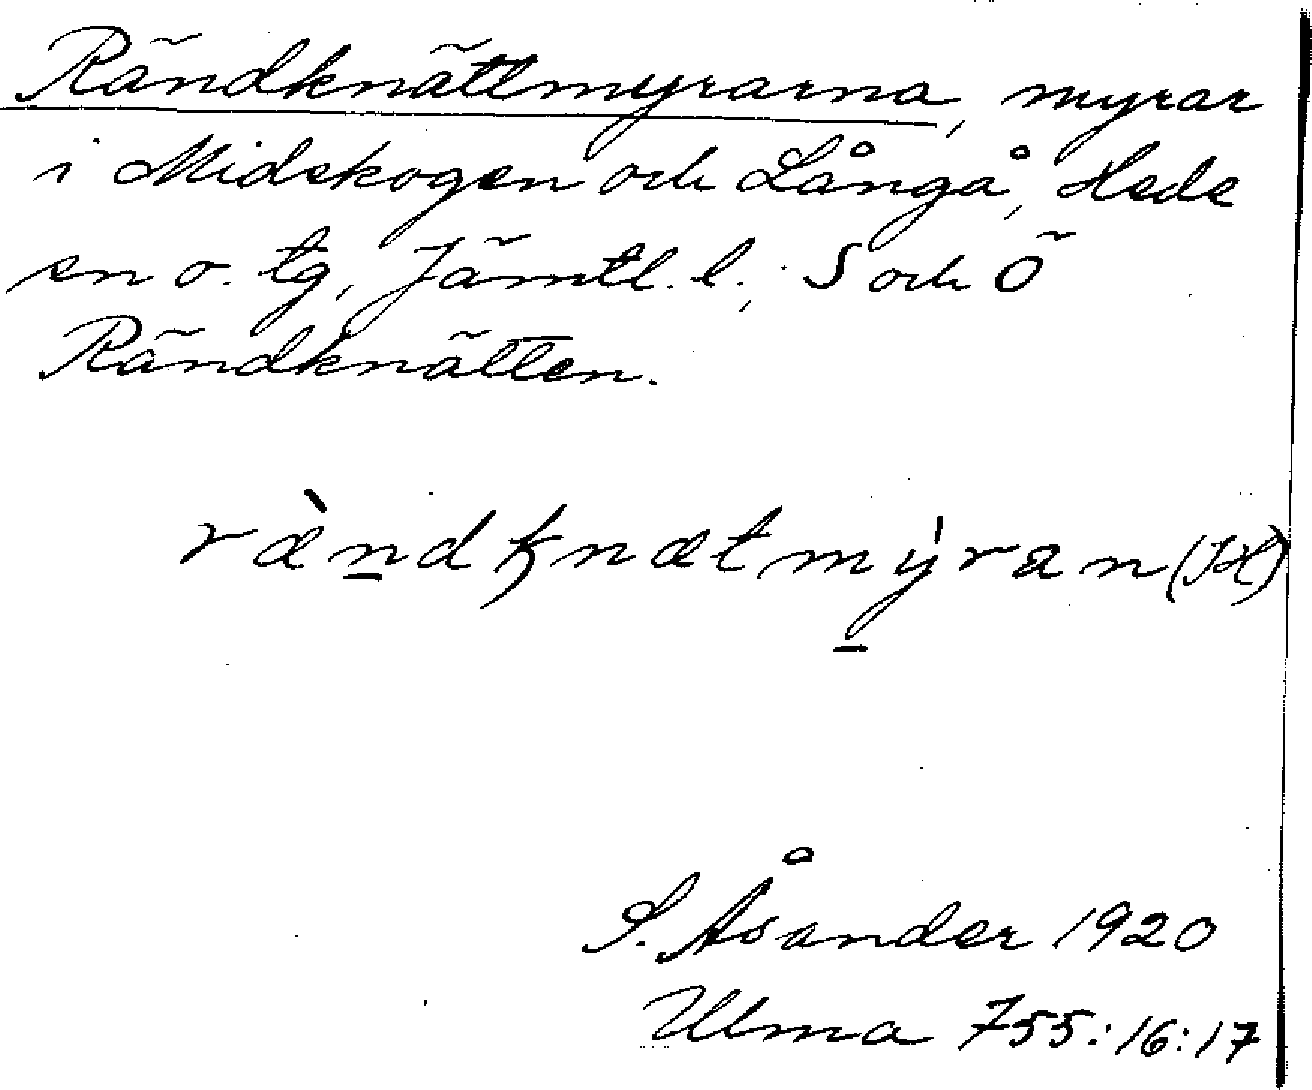 Rändknättmyrarna, myrar
i Midskogen och Långå, Hede
sn o. tg, Jämtl. l.; S och Ö
Rändknätten.
ræ̀n̠dknætmy̠̍ran (JH)
S. Åsander 1920
Ulma 755:16:17